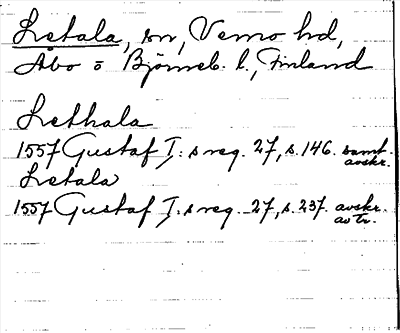 Letala, sn, Vemo hd,
Åbo o Björneb. l., Finland
Lethala
1557 Gustaf I:s reg. 27, s. 146. samt. avskr.
Letala
1557 Gustaf I:s reg. 27, s. 237. avskr. av tr.